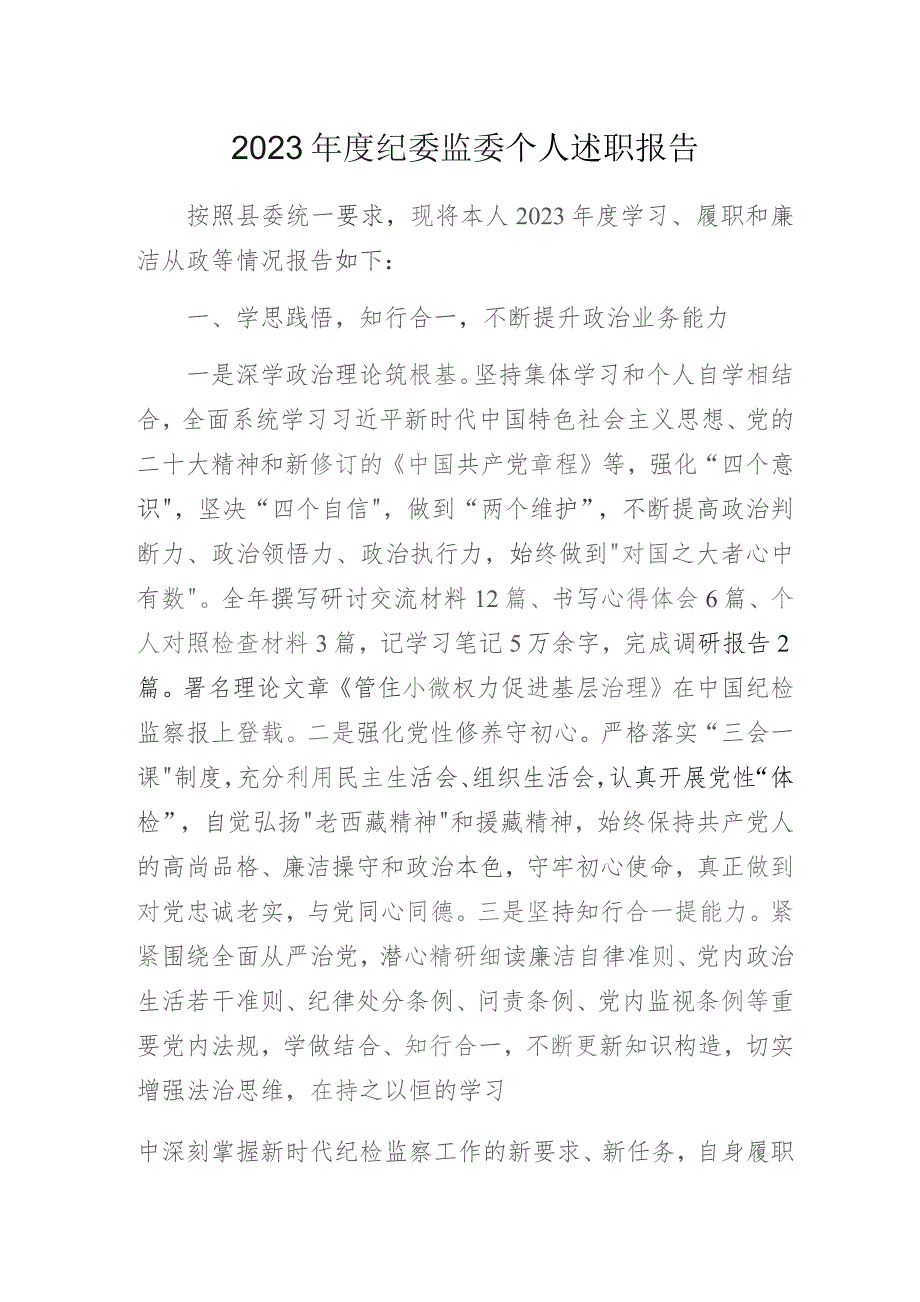 2023 年度纪委监委个人述职报告
按照县委统一要求，现将本人 2023 年度学习、履职和廉
洁从政等情况报告如下：
一、学思践悟，知行合一，不断提升政治业务能力
一是深学政治理论筑根基。坚持集体学习和个人自学相结
合，全面系统学习习近平新时代中国特色社会主义思想、党的
二十大精神和新修订的《中国共产党章程》等，强化“四个意
识"，坚决“四个自信"，做到“两个维护”，不断提高政治判
断力、政治领悟力、政治执行力，始终做到"对国之大者心中
有数"。全年撰写研讨交流材料 12 篇、书写心得体会 6 篇、个
人对照检查材料 3 篇，记学习笔记 5 万余字，完成调研报告 2
篇。署名理论文章《管住小微权力促进基层治理》在中国纪检
监察报上登载。二是强化党性修养守初心。严格落实“三会一
课"制度，充分利用民主生活会、组织生活会，认真开展党性“体
检”，自觉弘扬"老西藏精神"和援藏精神，始终保持共产党人
的高尚品格、廉洁操守和政治本色，守牢初心使命，真正做到
对党忠诚老实，与党同心同德。三是坚持知行合一提能力。紧
紧围绕全面从严治党，潜心精研细读廉洁自律准则、党内政治
生活若干准则、纪律处分条例、问责条例、党内监视条例等重
要党内法规，学做结合、知行合一，不断更新知识构造，切实
增强法治思维，在持之以恒的学习
中深刻掌握新时代纪检监察工作的新要求、新任务，自身履职